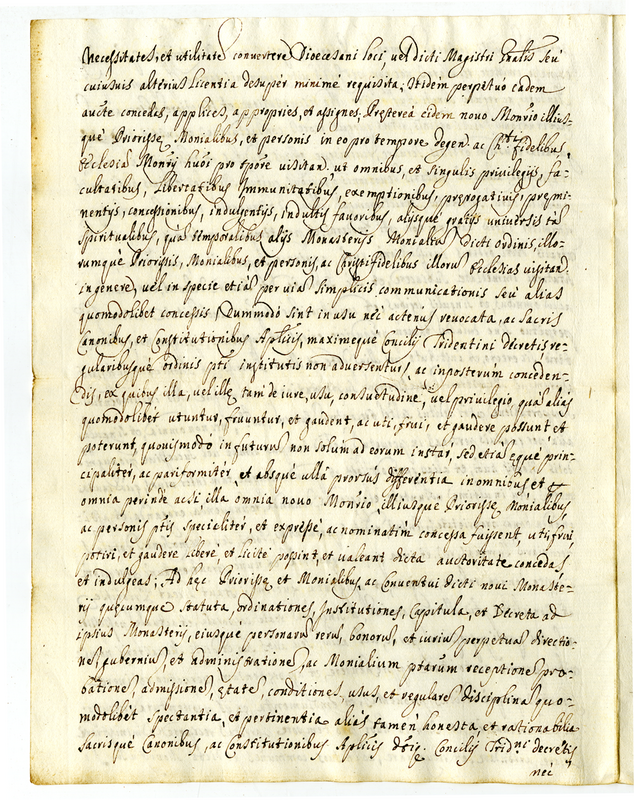 Necessitates, et utilitate convertere Dioecesani loci, vel dicti Magistri Gnalis seu
cuiusuis alterius Licentia desuper minimè requisita; Itidem perpetuo eadem
aucte concedas, applices, appropries, et assignes. Pręterea eidem novo Monrio illius-
què Priorissę Monialibus, et personis in eo pro tempore degen. ac Chti fidelibus
Ecclesiā Monrij huōi pro tpore visitan. ut omnibus, et singulis privilegijs, fa-
cultatibus, Libertatibus Immunitatibus, exemptionibus, pręrogativis, pręmi-
nentijs, concessionibus, indulgentijs, indultis favoribus, alijsquè gratijs universis tā
spiritualibus, quā temporalibus alijs Monasterijs Monialiū dicti ordinis, illo-
rumquè Priorissis, Monialibus, et personis, ac Christifidelibus illorū Ecclesias visitan.
in genere, vel in specie etiā per viā simplicis communicationis seu alias
quomodolibet concessis Dummodò sint in usu nèc actenus revocata, ac Sacris
Canonibus, et Constitutionibus Aplicis, maximequè Concilij Tridentini decretis re-
gularibusquè ordinis pti institutis non adversentur, ac inposterum conceden-
dis, ex quibus illa, vel illę tam de iure, usu, consuetudine, vel privilegio, quā aliàs
quomodolibèt utuntur, fruuntur, et gaudent, ac uti, frui, et gaudere possunt et
poterunt, quovismodo in futurū non solùm ad eorum instar, sed etiā ęquè prin-
cipalitèr, ac pariformitèr et absquè ulla prorsùs differentia in omnibus et
omnia perindè ac si illa omnia novo Monrio illiusquè Priorissę Monialibus
ac personis ptis specialitèr, et expressè, ac nominatim concessa fuissent uti, frui,
potiri, et gaudere liberè, et licitè possint, et valeant dicta auctoritate concedas
et indulgeas; Ad hęc Priorissę et Monialibus, ac Conventui dicti novi Monaste-
rij quęcumque statuta, ordinationes, Institutiones, Capitula, et Decreta ad
ipsius Monasterij, eiusquè personarū rerū, bonorū, et curiū perpetuā directio-
nē, guberniū, et administrationē, ac Monialium ptarum receptionē pro-
bationē, admissionē, ętatē, conditionē, usus, et regularē disciplinā quo-
modolibèt spectantia, et pertinentia aliàs tamèn honesta, et rationabilia
Sacrisquè Canonibus, ac Constitutionibus Aplicis Concilij Tridni decretis
nèc